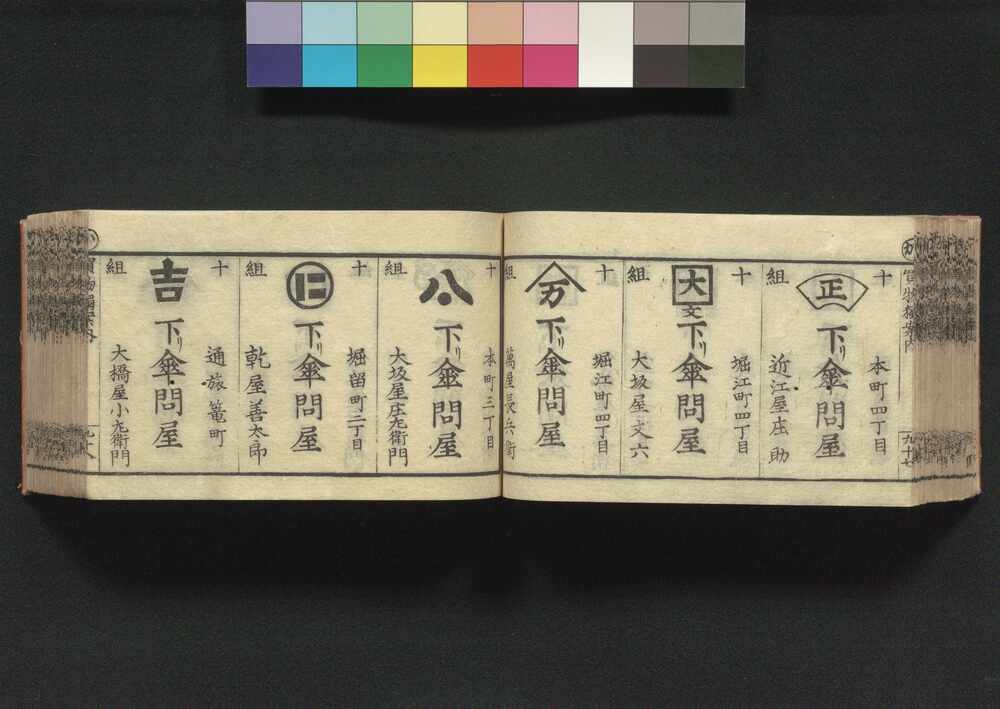 十組
正
下り傘問屋
本町四丁目
近江屋庄助
十組
大
文
下り傘問屋
堀江町四丁目
大坂屋文六
十組
万
下り傘問屋
堀江町四丁目
萬屋長兵衛
十組
八
下り傘問屋
本町三丁目
大坂屋庄左衛門
十組
仁
下り傘問屋
堀留町二丁目
乾屋善太郎
十組
吉
下り傘問屋
通旅篭町
大橋屋小左衛門
九十七